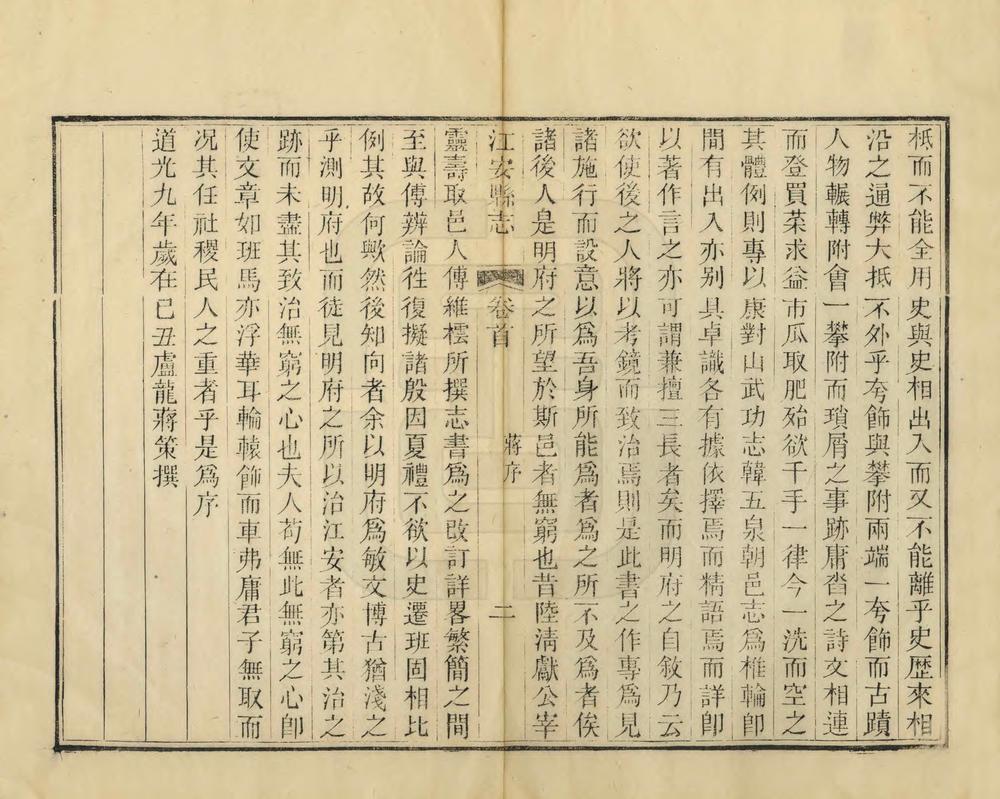 柢而不能全用史與史相出入而又不能離乎史歷來相
沿之通弊大抵不外乎夸飾與攀附兩端一夸飾而古蹟
人物輾轉附會一攀附而瑣屑之事跡庸沓之詩文相連
而登買菜求益市瓜取肥殆欲千手一律今一洗而空之
其體例則專以康對山武功志韓五泉朝邑志爲椎輪卽
間有出入亦别具卓識各有據依擇焉而精語焉而詳卽
以著作言之亦可謂兼擅三長者矣而明府之自敘乃云
欲使後之人將以考鏡而致治焉則是此書之作專爲見
諸施行而設意以爲吾身所能爲者爲之所不及爲者俟
諸後人是明府之所望於斯邑者無窮也昔陸淸獻公宰
江安縣志 卷首 蔣序 二
靈壽取邑人傅維橒所撰志書爲之改訂詳畧繁簡之間
至與傅辨論徃復擬諸殷因夏禮不欲以史遷班固相比
例其故何歟然後知向者余以明府爲敏文博古猶淺之
乎測明府也而徒見明府之所以治江安者亦第其治之
跡而未盡其致治無窮之心也夫人苟無此無窮之心卽
使文章如班馬亦浮華耳輪轅飾而車弗庸君子無取而
况其任社稷民人之重者乎是爲序
道光九年歲在已丑盧龍蔣策撰